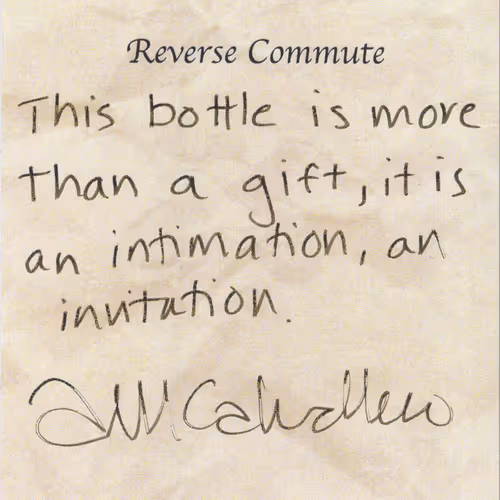 Reverse Commute
This bottle is more
than a gift, it is
an intimation, an
invitation.